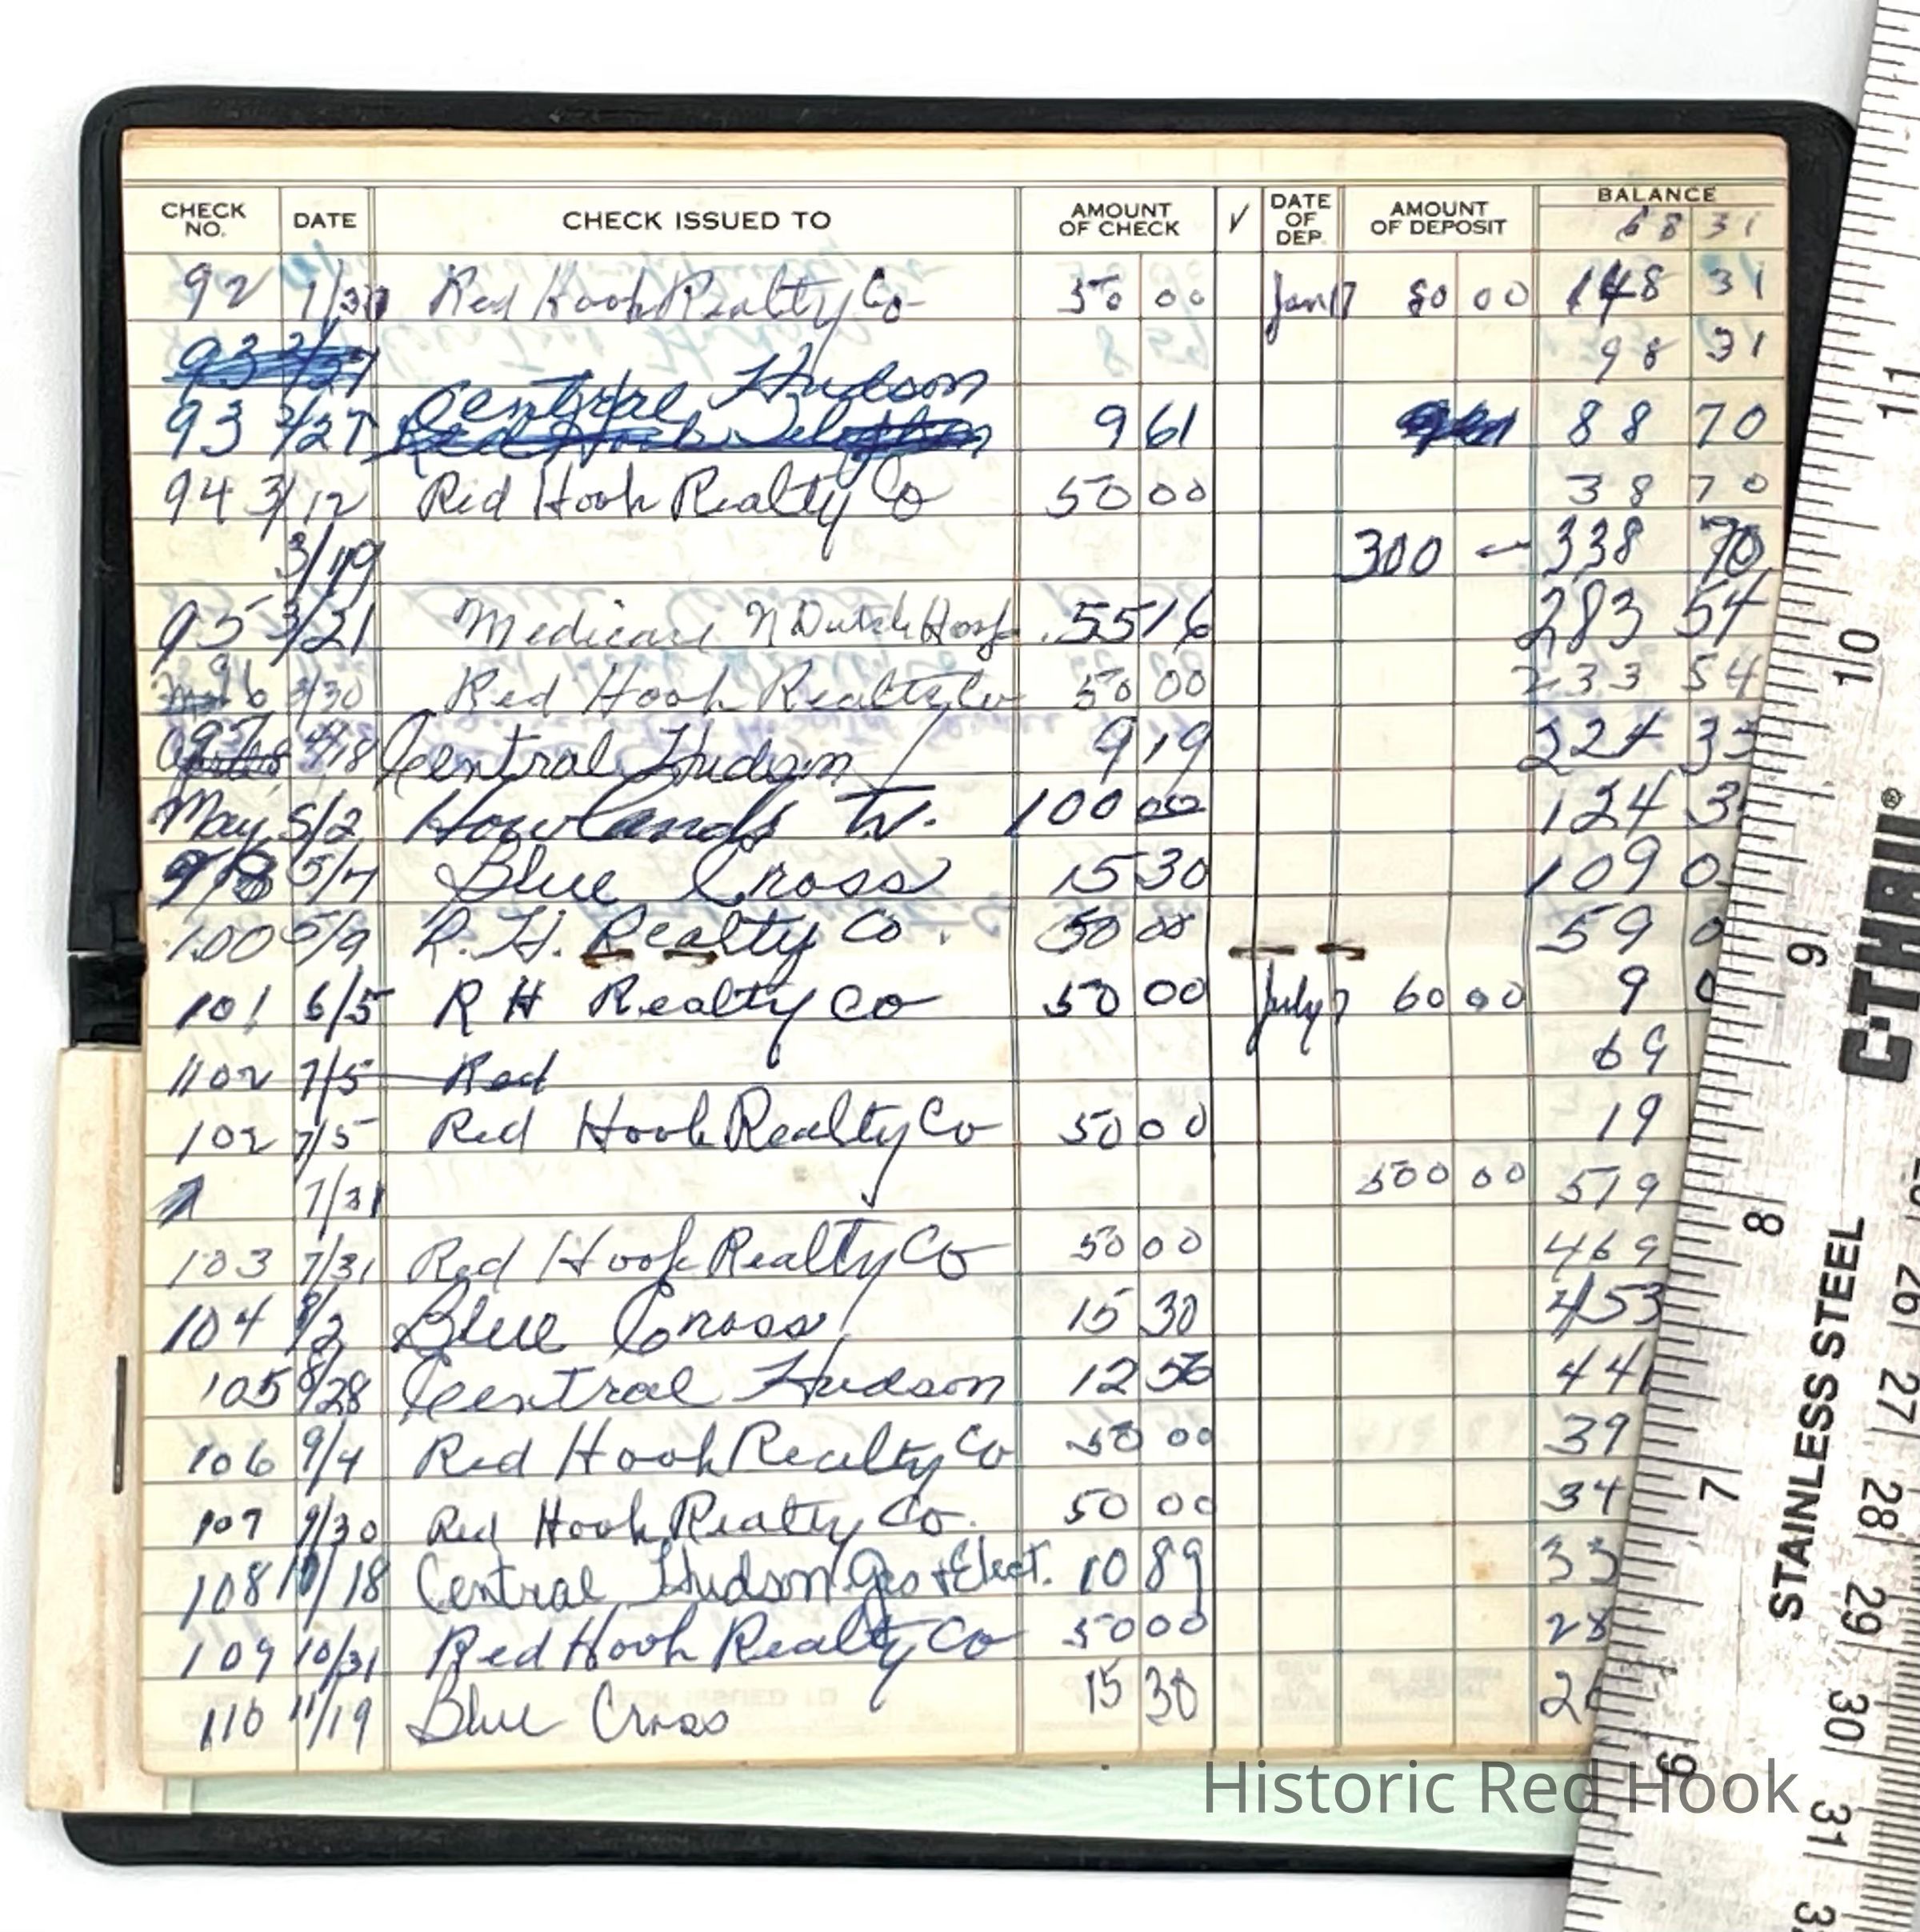 CHECK NO. DATE CHECK ISSUED TO AMOUNT OF CHECK √ DATE OF DEP. AMOUNT OF DEPOSIT BALANCE
68 31
92 1/30 Red Hook Realty Co 50 00 Jan 17 80 00 148 31
93 2/27 98 31
Central Hudson
93 2/27 Red Hook Telephon 9 61 9 61 88 70
94 3/12 Red Hook Realty Co 50 00 38 70
3/19 300 — 338 70
95 3/21 Medicare N Dutch Hosp. 55 16 283 54
96 3/30 Red Hook Realty Co 50 00 233 54
97 4/18 Central Hudson 9 19 224 35
May 5/2 Howlands TV. 100 00 124 3
98 5/4 Blue Cross 15 30 109 0
100 5/9 R. H. Realty Co. 50 00 59 0
101 6/5 R H Realty Co 50 00 July 7 60 00 9 0
1102 7/5 Red 69
102 7/5 Red Hook Realty Co 50 00 19
7/31 500 00 519
103 7/31 Red Hook Realty Co 50 00 469
104 8/2 Blue Cross 15 30 453
105 8/28 Central Hudson 12 50 441
106 9/4 Red Hook Realty Co 50 00 39
107 9/30 Red Hook Realty Co. 50 00 34
108 10/18 Central Hudson Gas + Elect. 10 89 33
109 10/31 Red Hook Realty Co 50 00 28
110 11/19 Blue Cross 15 30 2
C-THRU®
STAINLESS STEEL
11 10 9 8 7 6
26 27 28 29 30 31
Historic Red Hook